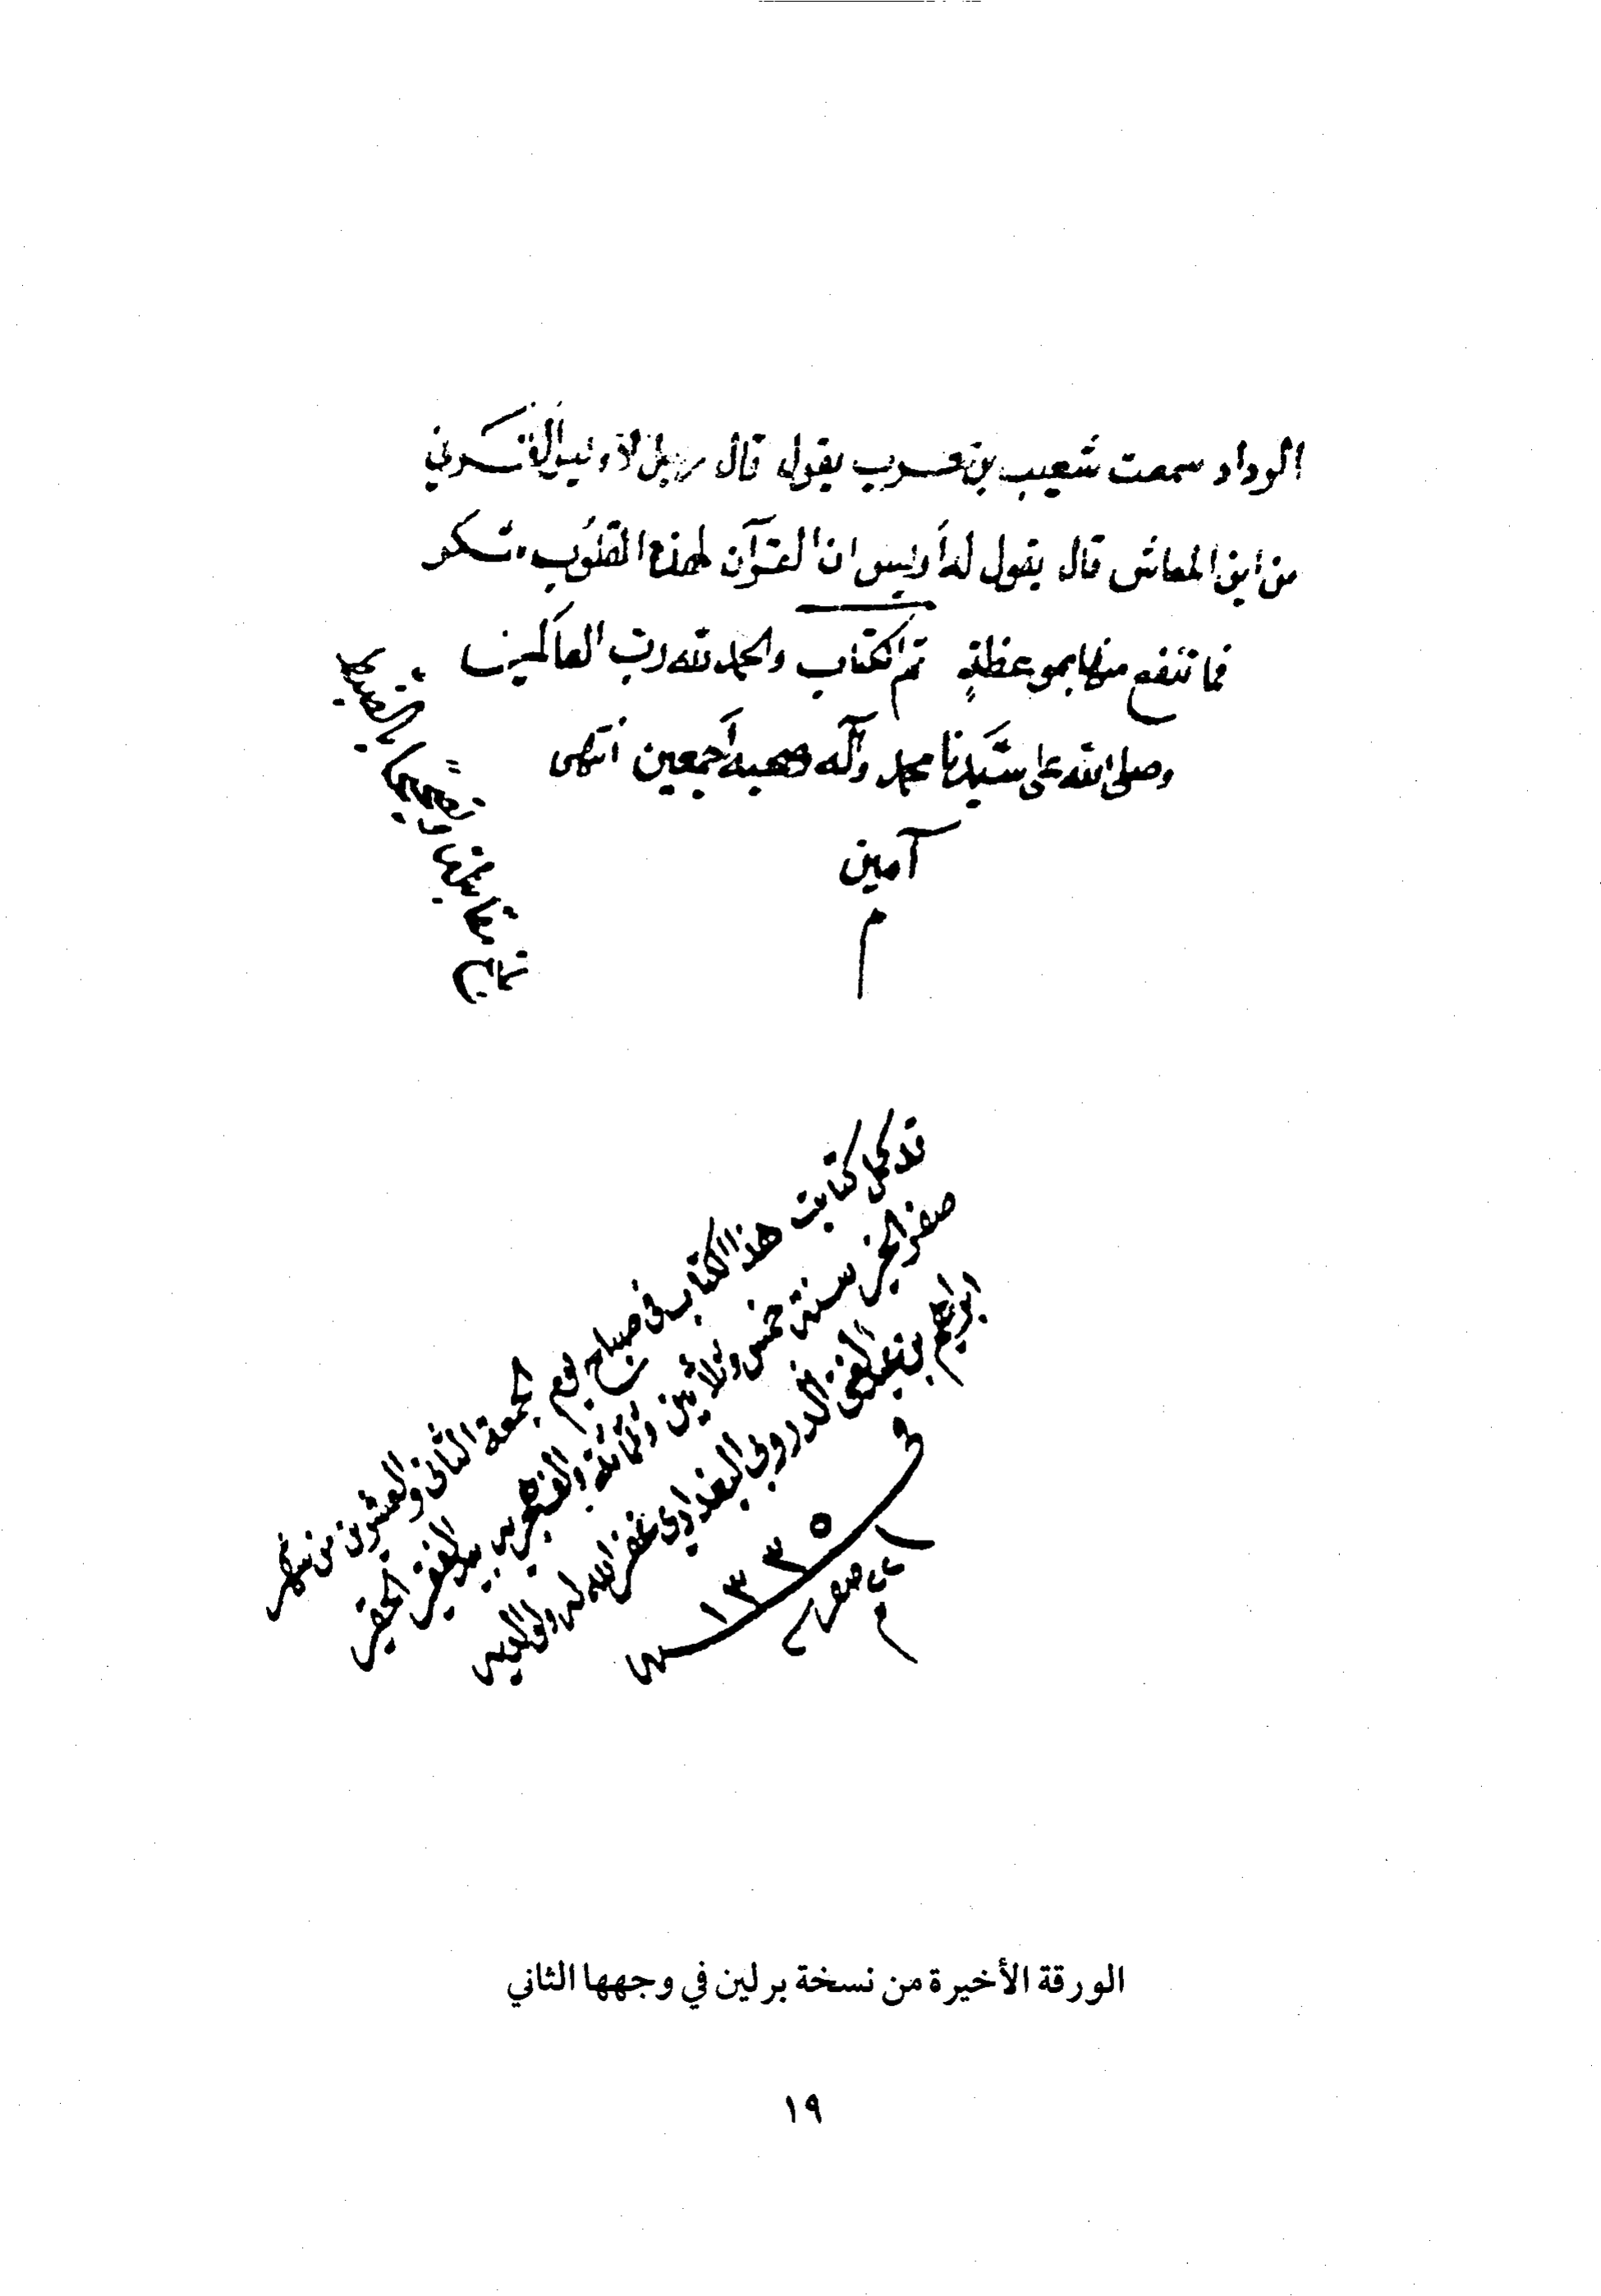 الوراد سمعت شعيب بن حرب يقول قال رجل لأويس القرني
من اين المعاش قال يقول له أويس ان القرآن لهذه القلوب
فما تنفع منها بموعظةٍ تم الكتاب والحمد لله رب العالمين
وصلى الله على سيدنا محمد وآله وصحبه أجمعين انتهى
آمين
م
قد كمل كتابت هذا الكتاب في صباح يوم الجمعة الثاني والعشرين من شهر
صفر الخير سنة خمس وثلاثين وثلثمائة والف بيد الفقير الحقير
ابراهيم بن عبد الغني الدروبي البغدادي غفر الله له ولوالديه
في
٢٢ صفر
سنة ١٣٣٥
الورقة الأخيرة من نسخة برلين في وجهها الثاني
١٩